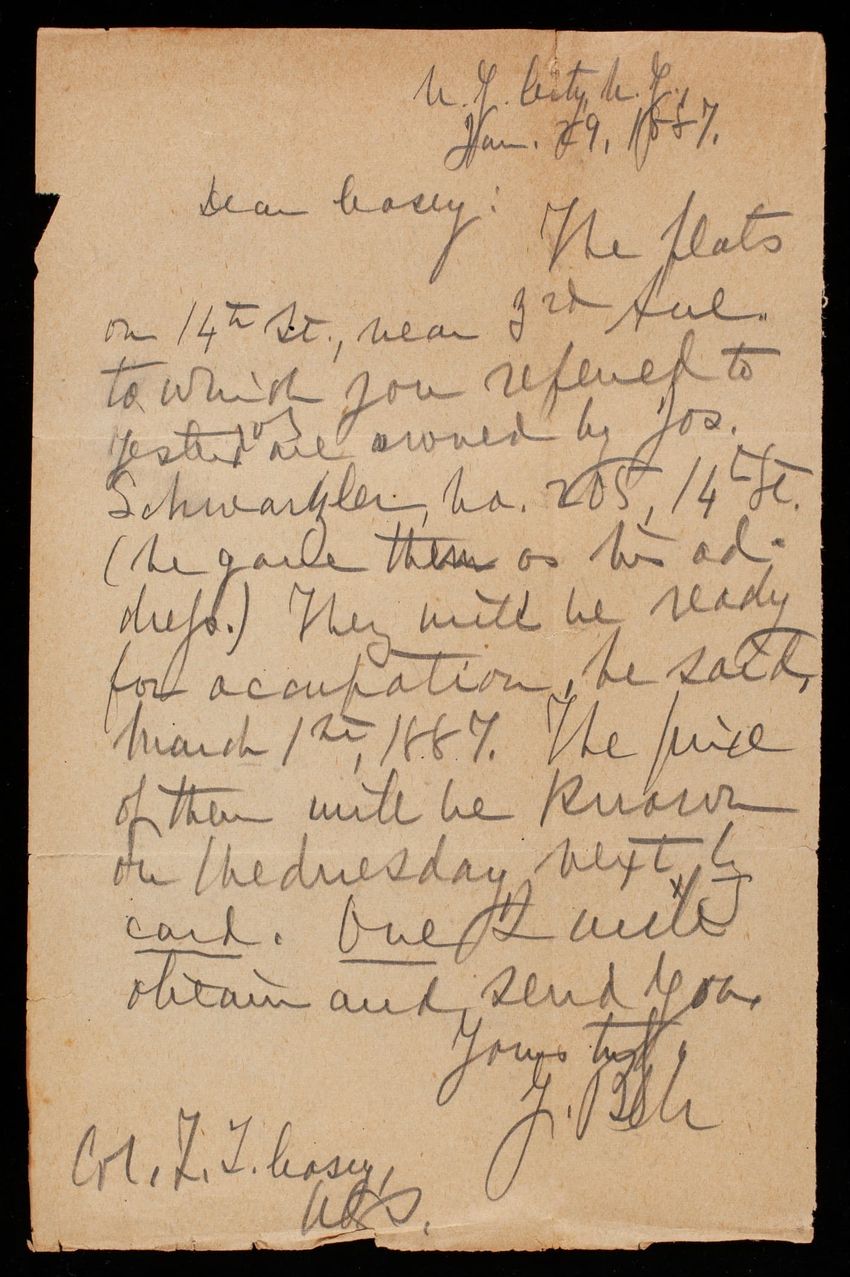 N. Y. City, N. Y.,
Jan. 29, 1887.
Dear Casey:
The flats
on 14th St., near 3rd Ave.
to which you refered to
yesterday are owned by Jos.
No. 205, 14th St.
(he gave them as his ad-
dress.) They will be ready
for occupation, he said,
March 1st, 1887. The price
of them will be known
on Wednesday next by
card. One I will
obtain and send you.
Yours truly,
Col. T. L. Casey,